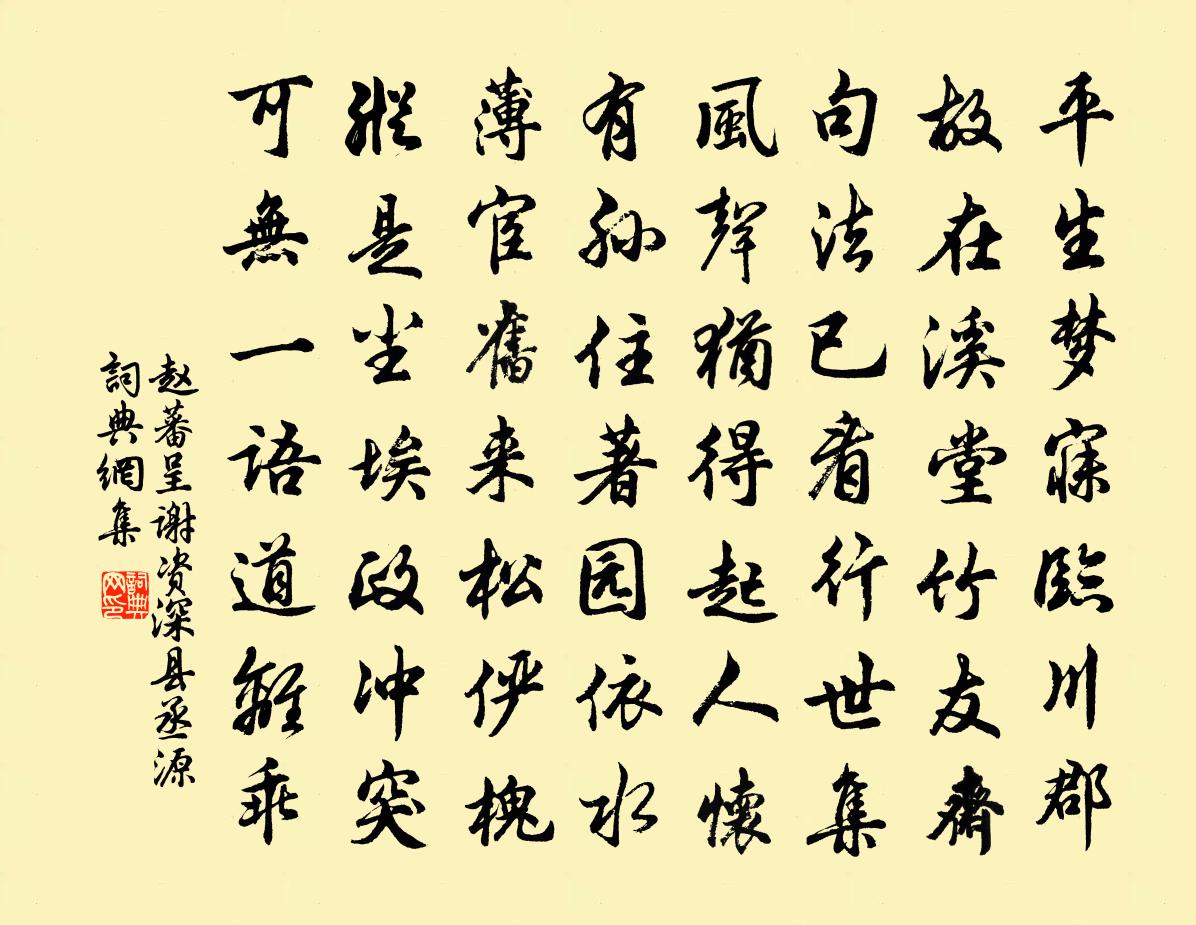 平生梦寐臨川郡
故在溪堂竹友齋
句法已看行世集
風聲猶得起人懷
有孙住著园依水
薄宦舊来松俨槐
縱是尘埃政冲突
可無一语道離乖
赵蕃呈谢资深县丞源
詞典網集
詞典网印